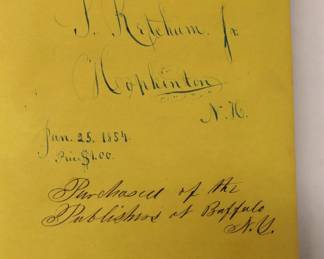 Ketchum. Jr
Hopkinton
N. H.
Jan. 25. 1854.
Price $1.00.
Purchased of the
Publishers at Buffalo
N. Y.